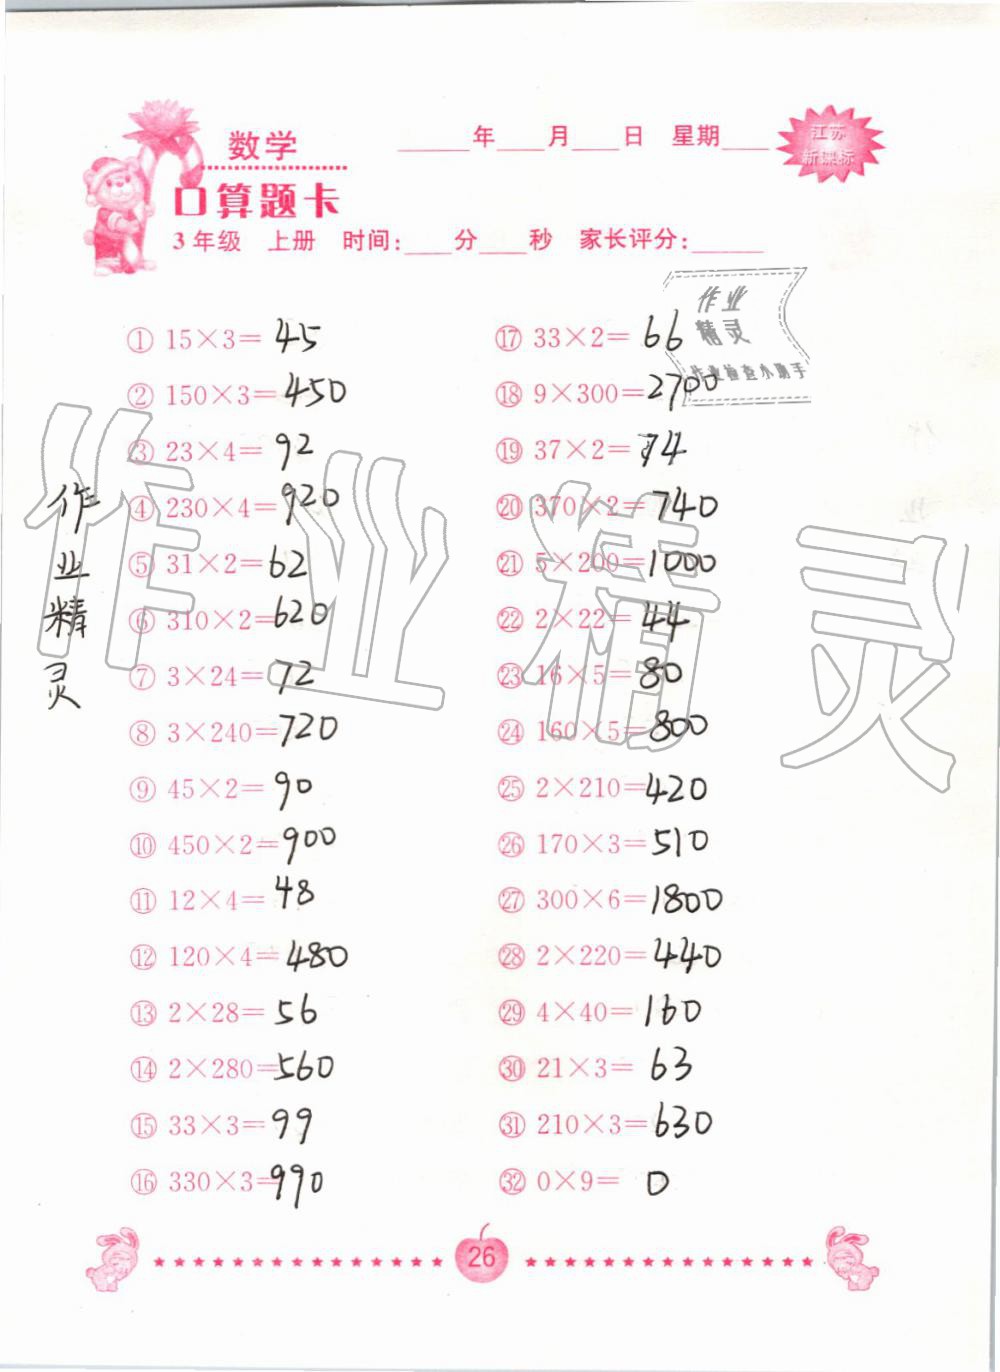 数学
____年____月____日 星期____
江苏
新课标
口算题卡
3年级 上册 时间:____分____秒 家长评分:______
作业
精灵
作业检查小助手
① 15×3=45
② 150×3=450
③ 23×4=92
④ 230×4=920
⑤ 31×2=62
⑥ 310×2=620
⑦ 3×24=72
⑧ 3×240=720
⑨ 45×2=90
⑩ 450×2=900
⑪ 12×4=48
⑫ 120×4=480
⑬ 2×28=56
⑭ 2×280=560
⑮ 33×3=99
⑯ 330×3=990
⑰ 33×2=66
⑱ 9×300=2700
⑲ 37×2=74
⑳ 370×2=740
㉑ 5×200=1000
㉒ 2×22=44
㉓ 16×5=80
㉔ 160×5=800
㉕ 2×210=420
㉖ 170×3=510
㉗ 300×6=1800
㉘ 2×220=440
㉙ 4×40=160
㉚ 21×3=63
㉛ 210×3=630
㉜ 0×9=0
作业精灵
作业精灵
26